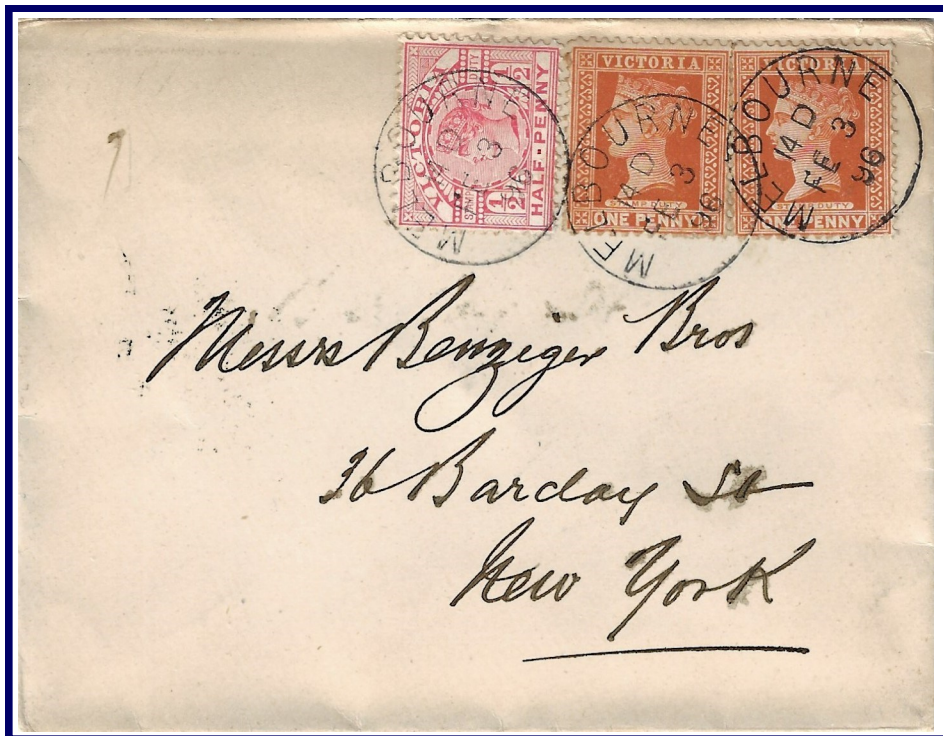 VICTORIA
STAMP DUTY
1/2 1/2
HALF-PENNY
MELBOURNE
14 D
FE 3
96
VICTORIA
STAMP DUTY
ONE PENNY
MELBOURNE
14 D
FE 3
96
VICTORIA
STAMP DUTY
ONE PENNY
MELBOURNE
14 D
FE 3
96
Messrs Benziger Bros
36 Barclay St
New York